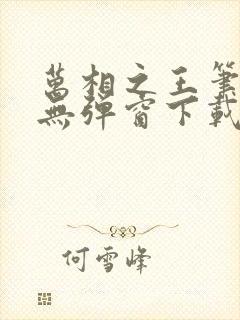 萬相之王筆
無彈窗下載
何雪峰